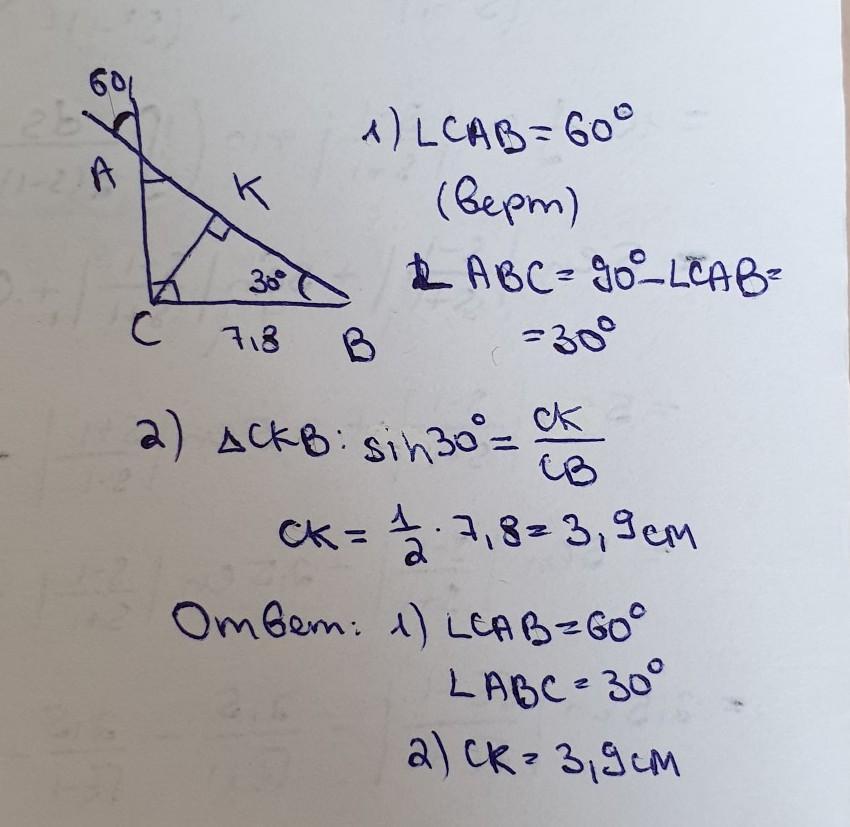 60
A
K
30°
C
7,8
B
1) ∠CAB = 60°
(верт)
∠ ABC = 90° - ∠CAB =
= 30°
2) △CKB: sin30° = CK/CB
CK = 1/2 · 7,8 = 3,9 см
Ответ: 1) ∠CAB = 60°
∠ABC = 30°
2) CK = 3,9 см